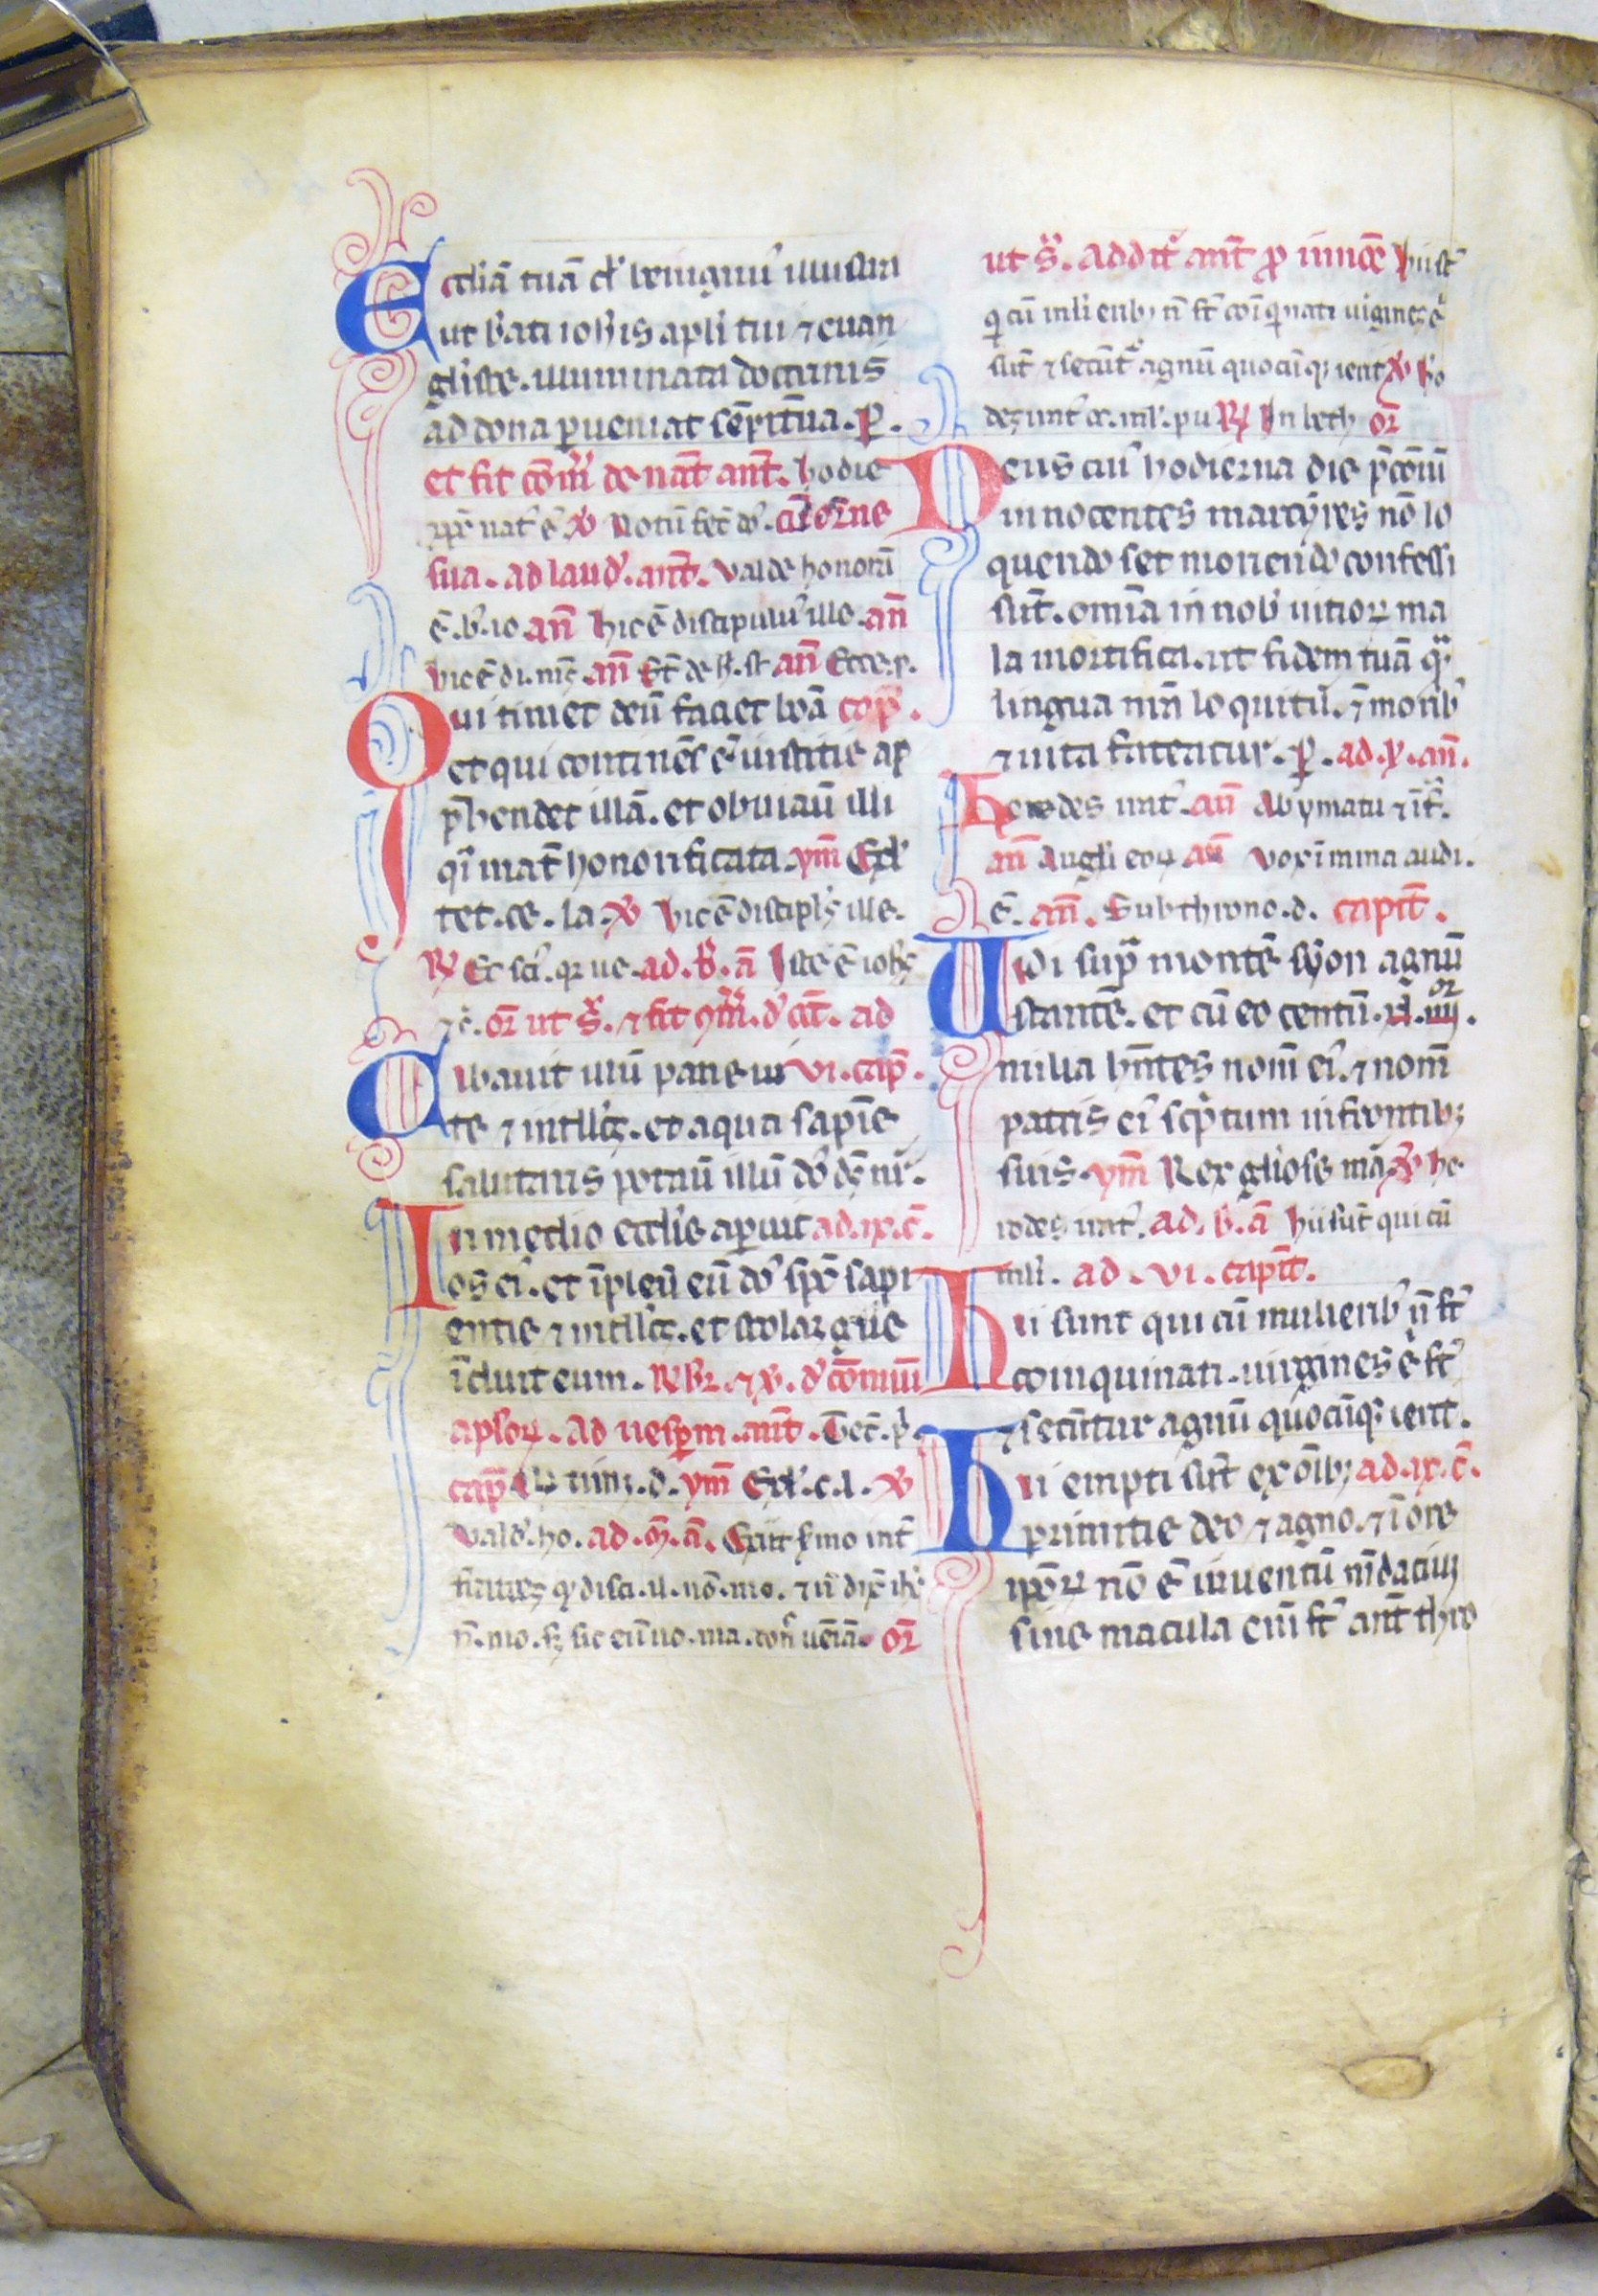 Eccliā tuā d̄ benignus illustra
ut b̄ati ioh̄is apl̄i tui ⁊ euan
gl̄iste. illuminata doctrinis
ad dona ꝑueniat sēpit̄na. ꝑ.
et fit cōm̄ de nat̄ ant̄. hodie
xp̄c nat' ē ℣ Notū fec̄ dn̄s
sua. ad laud'. ant̄. Valde honorā
ē. b̄. io. an̄ hic ē discipulus ille. an̄
hic ē di. m̄s an̄ an̄ Ecce. p.
Qui timet deū faciet bōa cap̄.
et qui continēs ē iusticie ap
p̄hendet illā. et obuiaū illi
q̄i mat̄ honorificata. ym̄ Exl'
tet. ce. la. ℣ hic ē discipl's ille.
℟ Et sci'. qr ue. ad. b̄. ā Iste ē ioh̄s
⁊c̄. or̄ ut s̄. ⁊ fit d' nat̄. ad
Cibauit illū pane ui vi. cap̄.
te ⁊ intll'c̄. et aqua sapīe
salutaris potaū illū dn̄s ds̄ nr̄.
In medio eccl'ie aꝑuit ad. ix. c̄.
os ei'. et īpleū eū dn̄s sp̄u sapi
entie ⁊ intll'c̄. et stolaꝫ gl'ie
īduit eum. ℟ br̄. ⁊ ℣. d' cōmuni
apl'oꝝ. ad uesꝑm. ant̄. Tec̄. p̄.
cap̄ Q' tim̄. d. ym̄ Exl'. c. l. ℣
Vald'. ho. ad. m̄. ā. Exiit s̄mo int̄
fratres ꝙ disci. il. nō. mo. ⁊ n̄ dix̄ ih̄c
n̄. mo. sꝫ sic eū uo. ma. don̄ ueīa. or̄
ut s̄. addit̄ ant̄ ꝓ innoc̄ hii st̄
q̄ cū mlierib; n̄ st̄ coīq̄nati uigines ē
sūt ⁊ secūt' agnū quocūq; ierit ℣ h'o
des irat' ē. ml'. pu ℟ In beth or̄
Deus cui' hodierna die p̄coniū
innocentes martyres nō lo
quendo set moriendo confessi
sūt. omīa in nob' uitioꝝ ma
la mortifica. ut fidem tuā q̄
lingua nr̄a loquitur. ⁊ morib'
⁊ uita fateatur. ꝑ. ad. p̄. an̄.
Herodes irat'. an̄ A bymatu ⁊ īf̄.
an̄ Angl'i eoꝝ an̄ Vox ī rama audi.
ē. an̄. Sub throno. d. capit̄.
Uidi sup̄ montē syon agnū
stantē. et cū eo centū. xl. iiii.
milia h̄ntes nom̄ ei'. ⁊ nom̄
patris ei' sc̄ptum in frontib;
suis. ym̄ Rex gl'iose mā. ℣ he
rodes irat'. ad. b. ā hii sūt qui cū
mli'. ad. vi. capit̄.
Hii sunt qui cū mulierib' n̄ st̄
coinquinati. uirgines ē st̄
⁊ secūtur agnū quocūq; ierit.
Hii empti sūt ex oīb; ad. ix. c̄.
primitie deo ⁊ agno. ⁊ ī ore
ip̄oꝝ nō ē inuentū m̄daciū
sine macula eni st̄ ant̄ thro